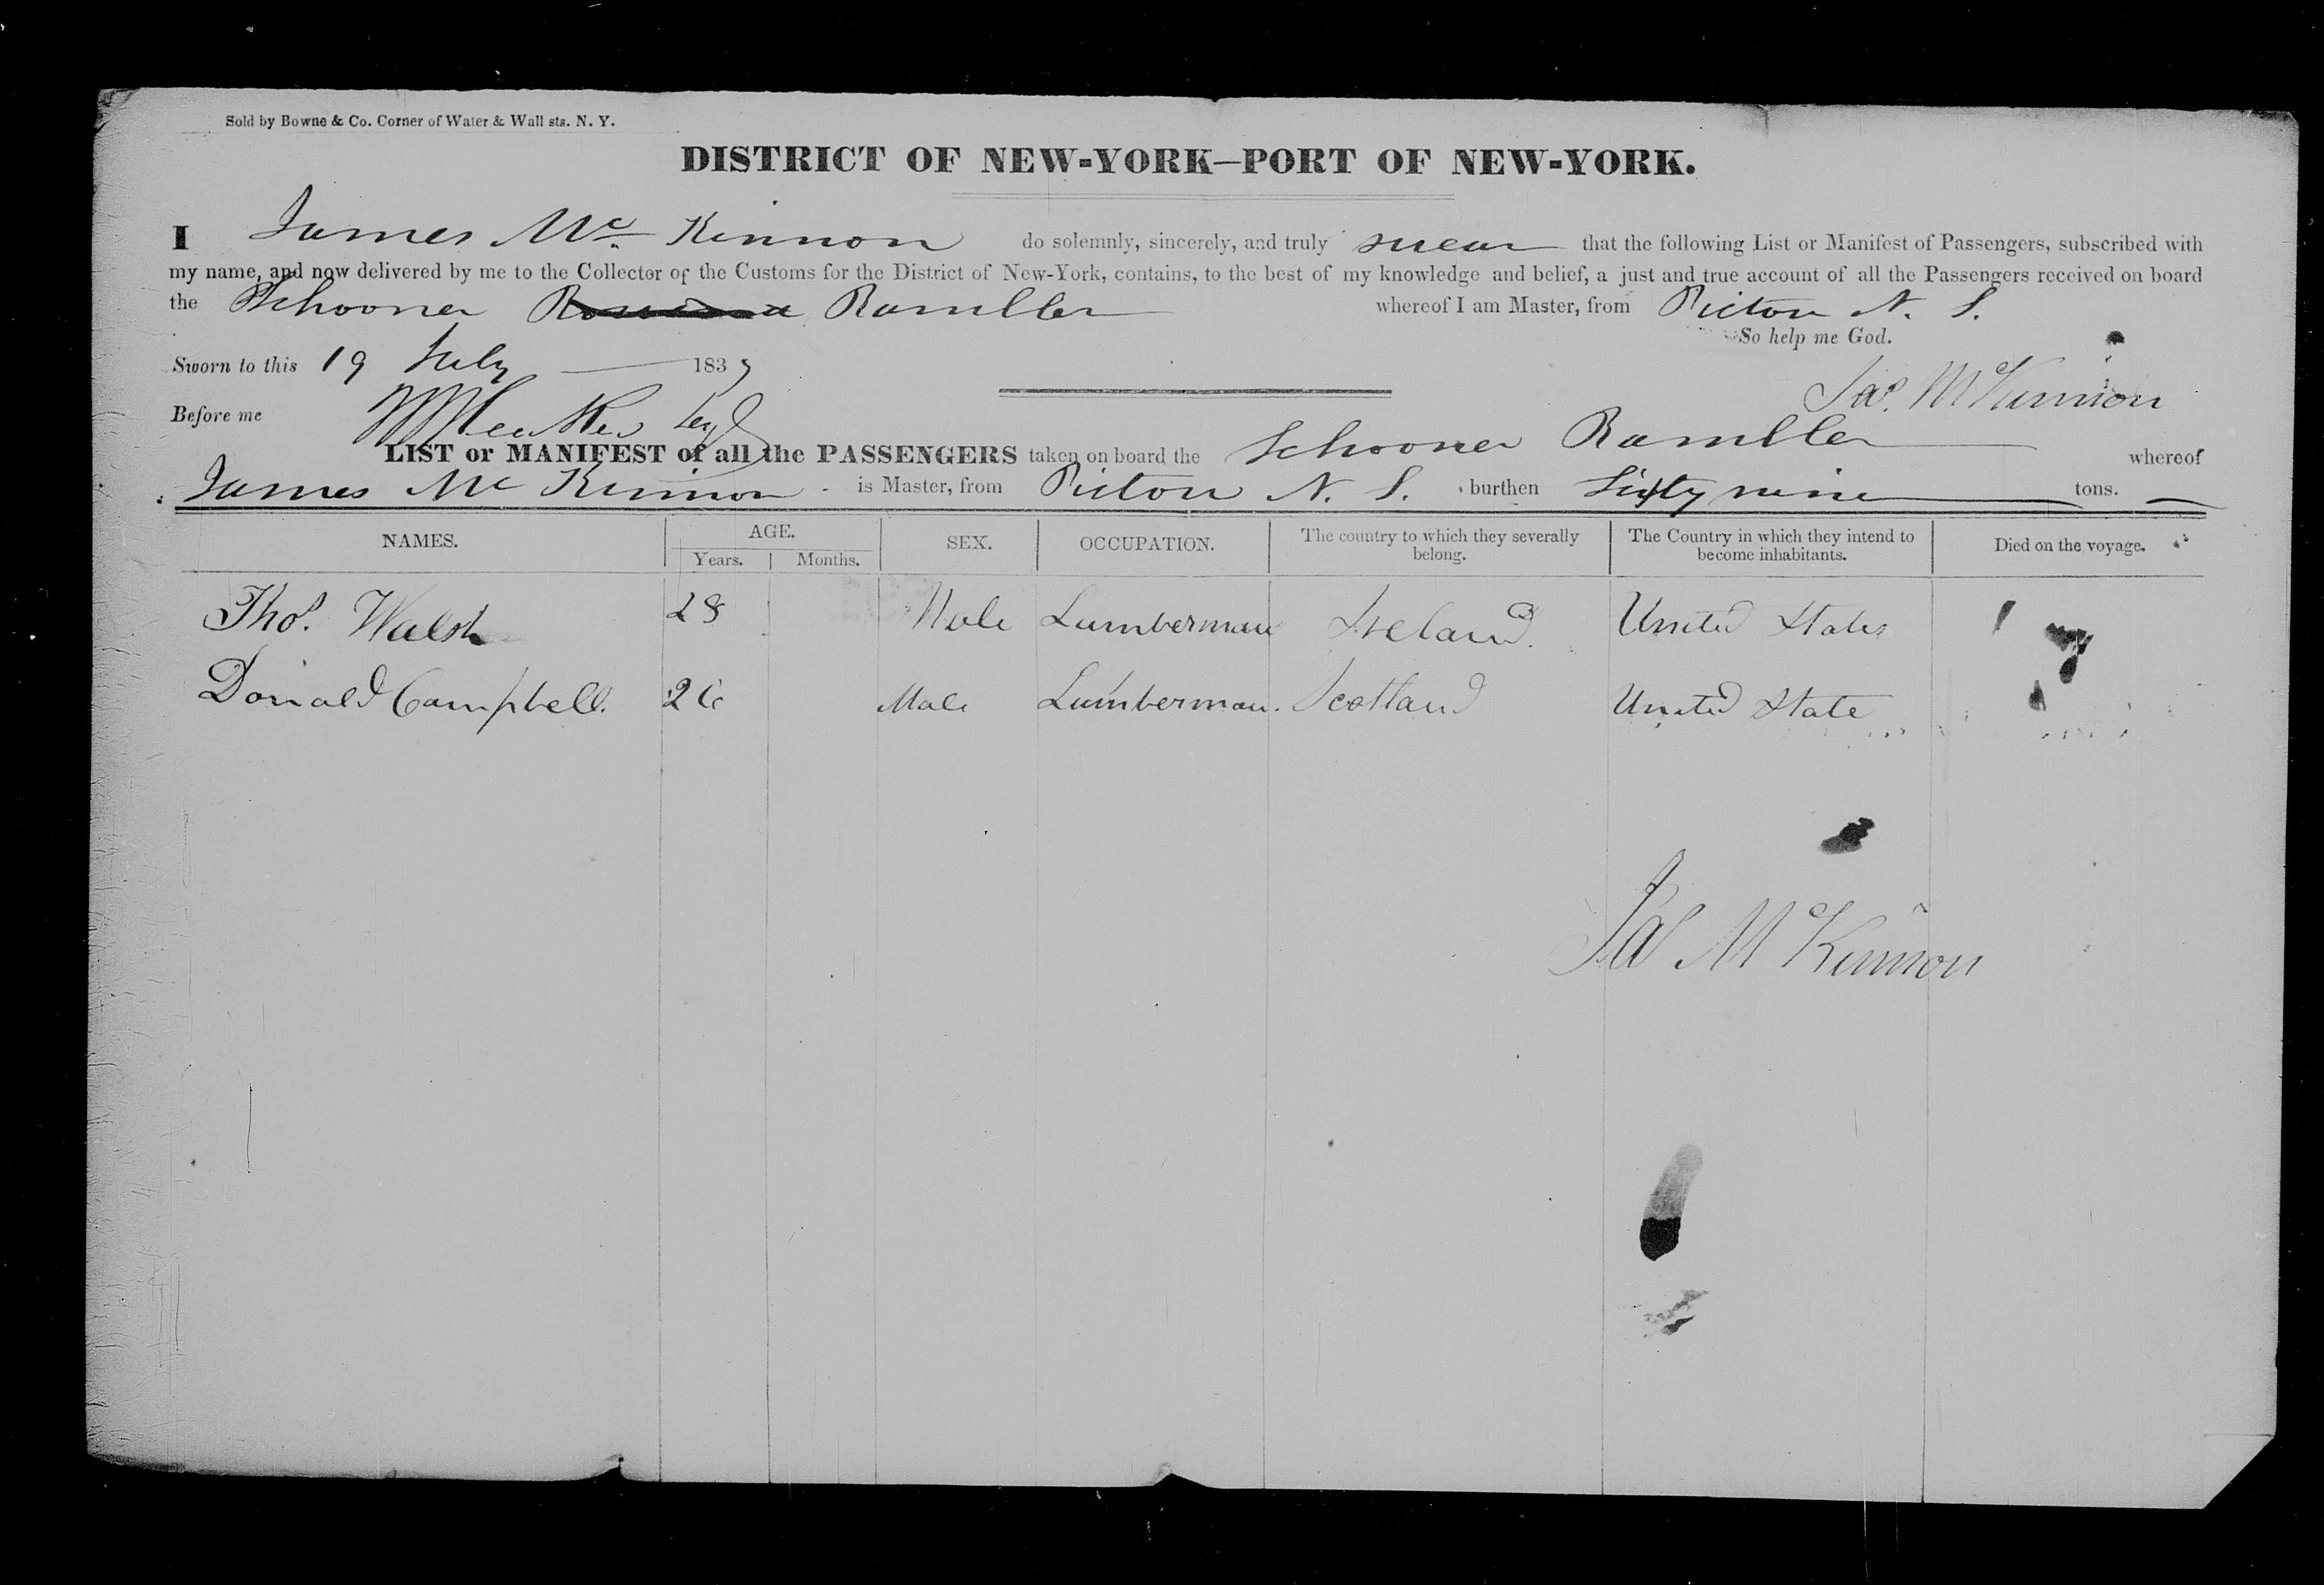 Sold by Bowne & Co. Corner of Water & Wall sts. N. Y.
DISTRICT OF NEW-YORK—PORT OF NEW-YORK.
I James Mc. Kinnon do solemnly, sincerely, and truly swear that the following List or Manifest of Passengers, subscribed with
my name, and now delivered by me to the Collector of the Customs for the District of New-York, contains, to the best of my knowledge and belief, a just and true account of all the Passengers received on board
the Schooner Rambler whereof I am Master, from Picton N. S.
So help me God.
Sworn to this 19 July 1837
Jas. McKinnon
Before me
LIST or MANIFEST of all the PASSENGERS taken on board the Schooner Rambler whereof
James Mc Kinnon is Master, from Picton N. S. burthen Sixty nine tons.
NAMES. AGE. SEX. OCCUPATION. The country to which they severally belong. The Country in which they intend to become inhabitants. Died on the voyage.
Years. Months.
Thos. Walsh 28 Male Lumberman Ireland. United States
Donald Campbell. 26 Male Lumberman. Scotland United State
Jas McKinnon